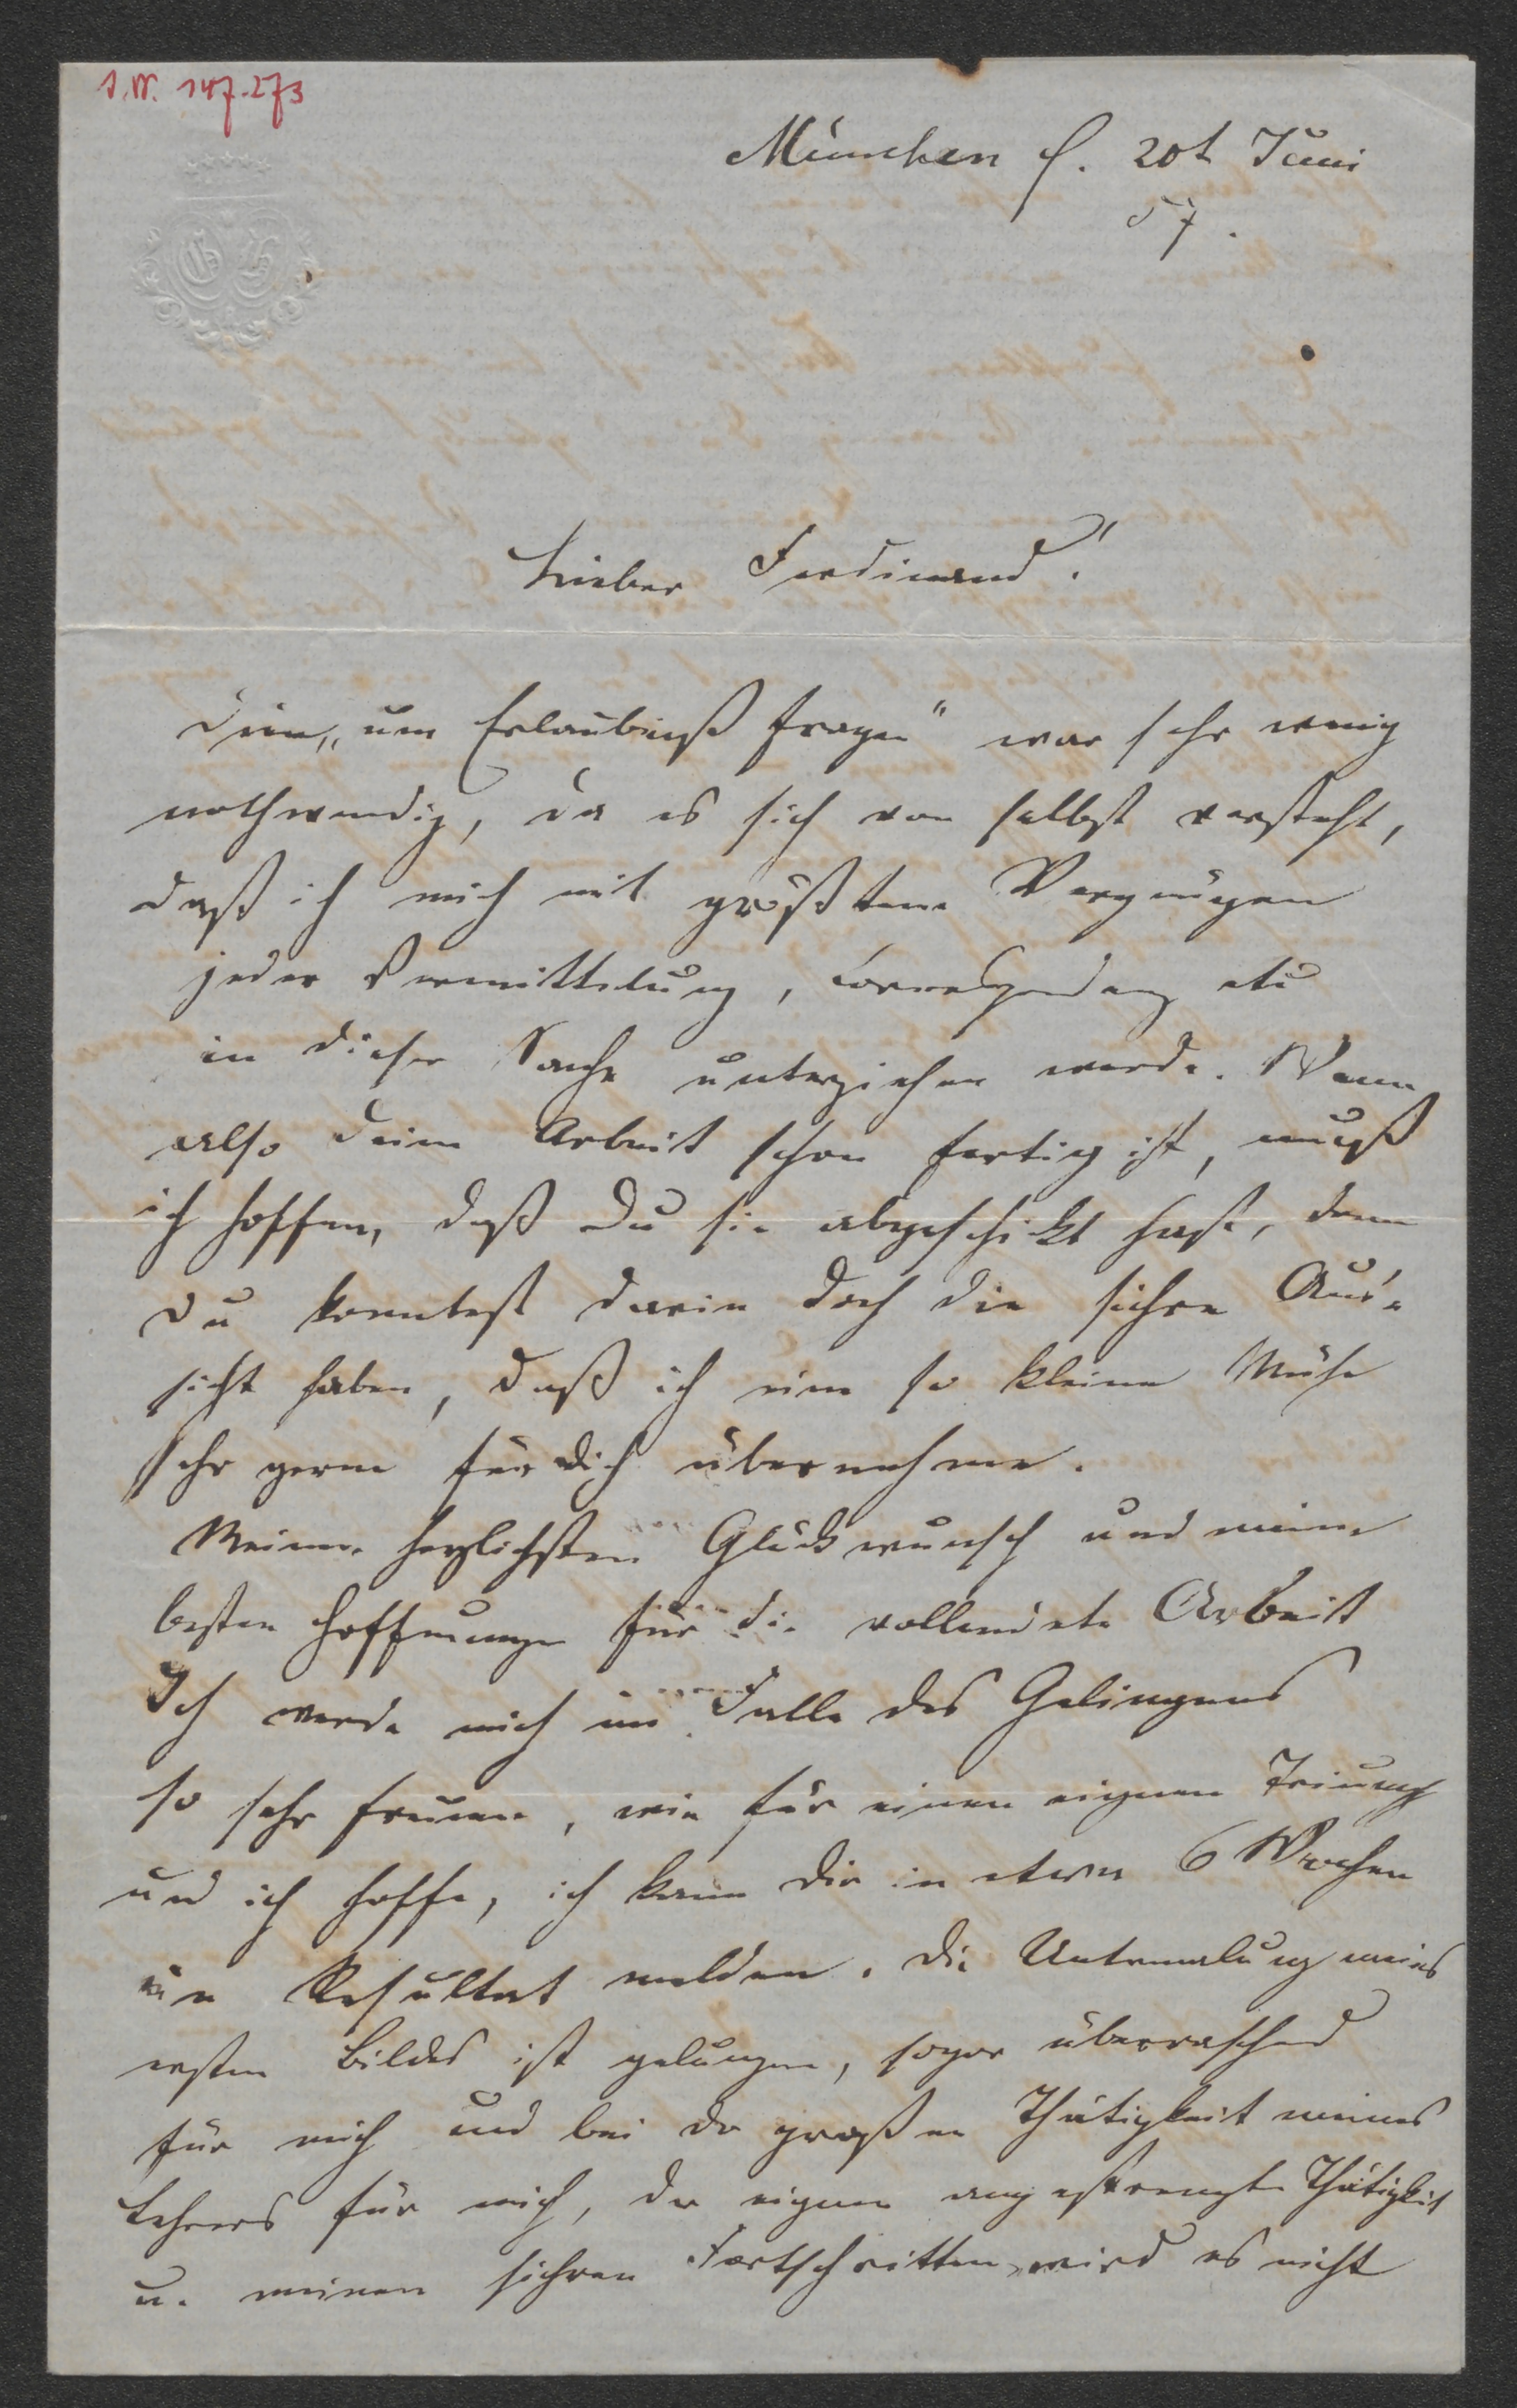 I.N. 147.273
München d. 20t Juni
57.
Lieber Ferdinand!
Dein „um Erlaubniß fragen" war sehr wenig
nothwendig, da es sich von selbst versteht,
daß ich mich mit größtem Vergnügen
jeder Vermittelung, Correspondenz etc
in dieser Sache unterziehen werde. Wenn
also deine Arbeit schon fertig ist, muß
ich hoffen, daß Du sie abgeschikt hast, denn
Du konntest darin doch die sichre Aus-
sicht haben, daß ich eine so kleine Mühe
sehr gerne für dich übernehme.
Meinen herzlichsten Glückwunsch und meine
besten Hoffnungen für die vollendete Arbeit
Ich werde mich im Falle des Gelingens
so sehr freuen, wie für einen eignen Triumph
und ich hoffe, ich kann dir in etwa 6 Wochen
ein Resultat melden. Die Untermalung meines
ersten Bildes ist gelungen, sogar überraschend
für mich und bei der großen Thätigkeit meines
Lehrers für mich, der eignen angestrengten Thätigkeit
u. meinen sichren Fortschritten, wird es nicht